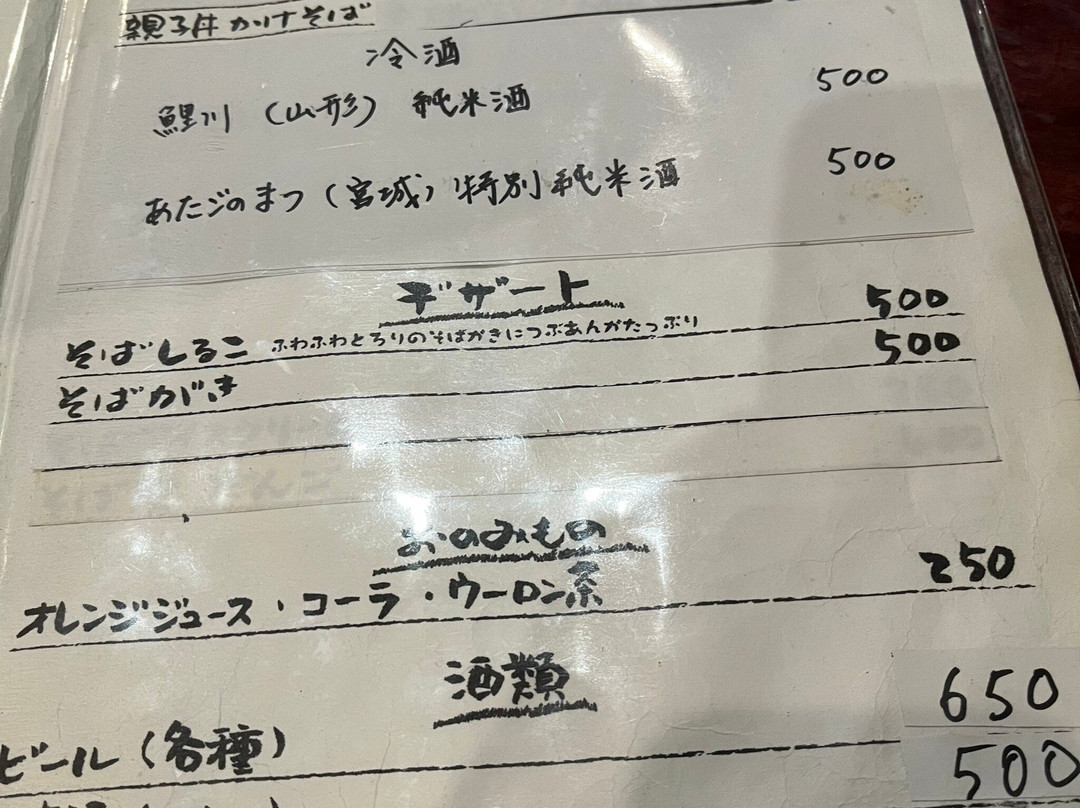 親子丼 かけそば
冷酒
鯉川 (山形) 純米酒 500
あたごのまつ (宮城) 特別純米酒 500
デザート
そばしるこ ふわふわとろりのそばがきにつぶあんがたっぷり 500
そばがき 500
おのみもの
オレンジジュース・コーラ・ウーロン茶 250
酒類
ビール (各種) 650
500